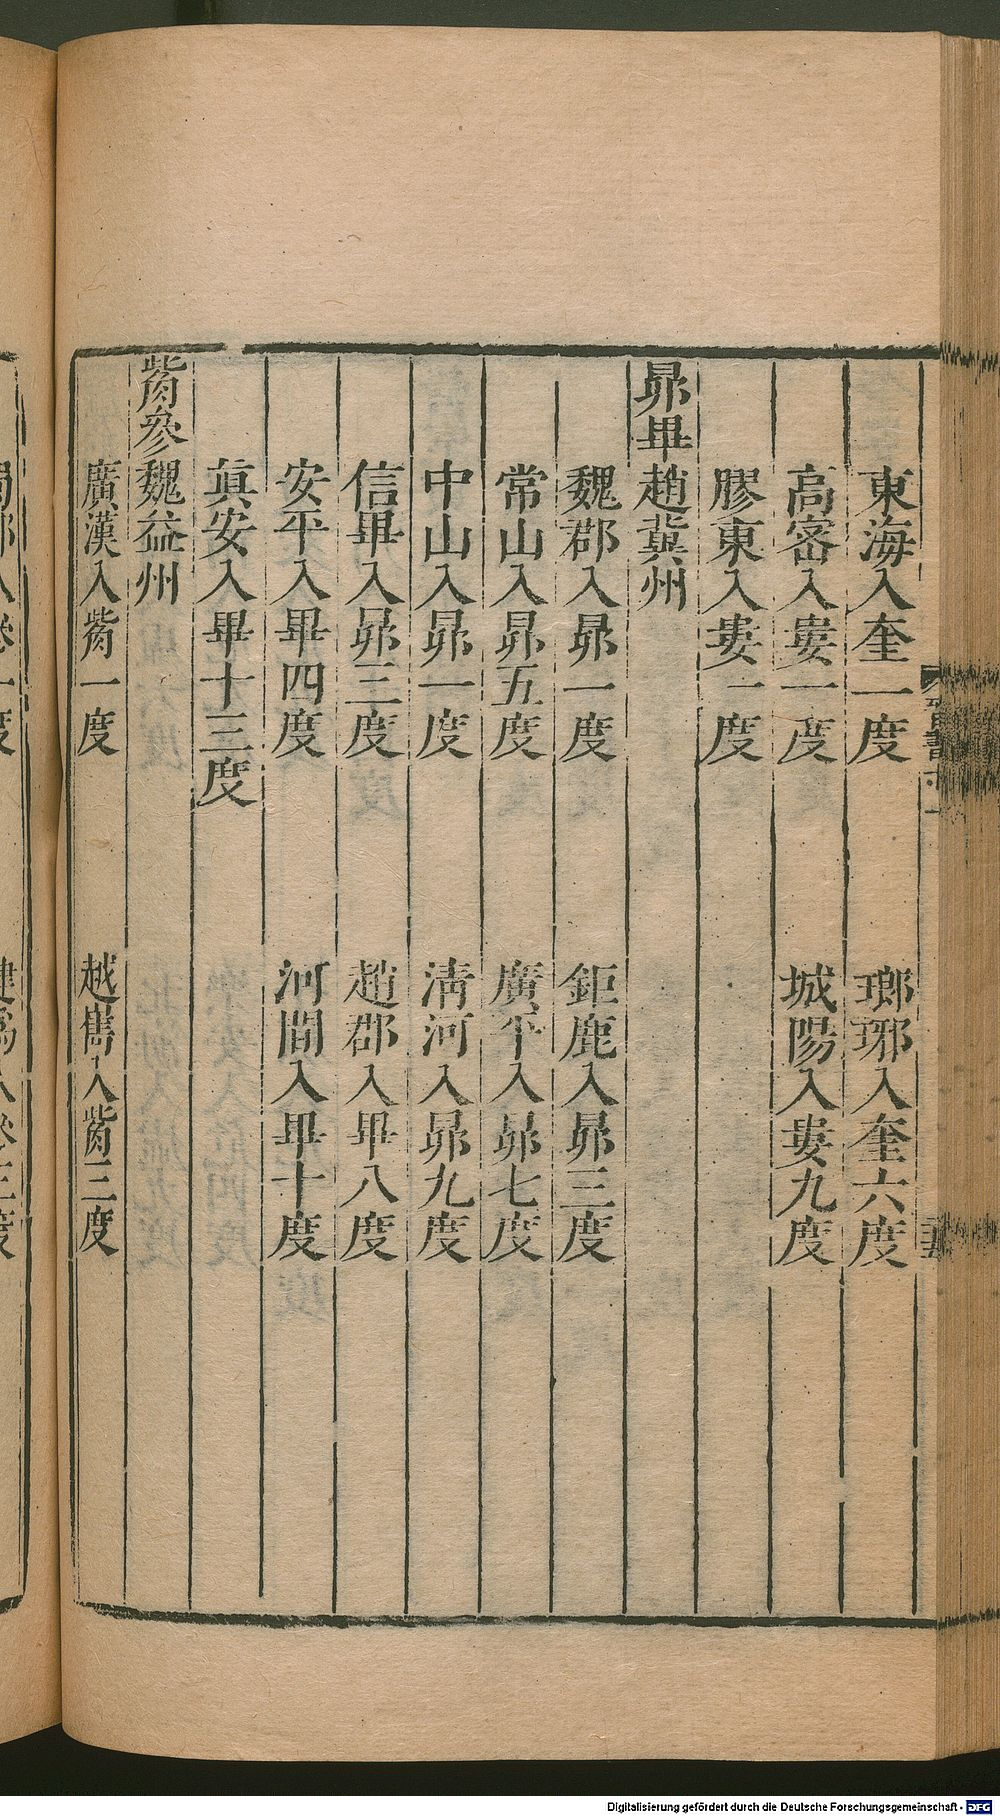 東海入奎一度 瑯琊入奎六度
高密入婁一度 城陽入婁九度
膠東入婁一度
昴畢趙冀州
魏郡入昴一度 鉅鹿入昴三度
常山入昴五度 廣平入昴七度
中山入昴一度 淸河入昴九度
信畢入昴三度 趙郡入畢八度
安平入畢四度 河間入畢十度
眞安入畢十三度
觜參魏益州
廣漢入觜一度 越雋入觜三度
Digitalisierung gefördert durch die Deutsche Forschungsgemeinschaft - DFG